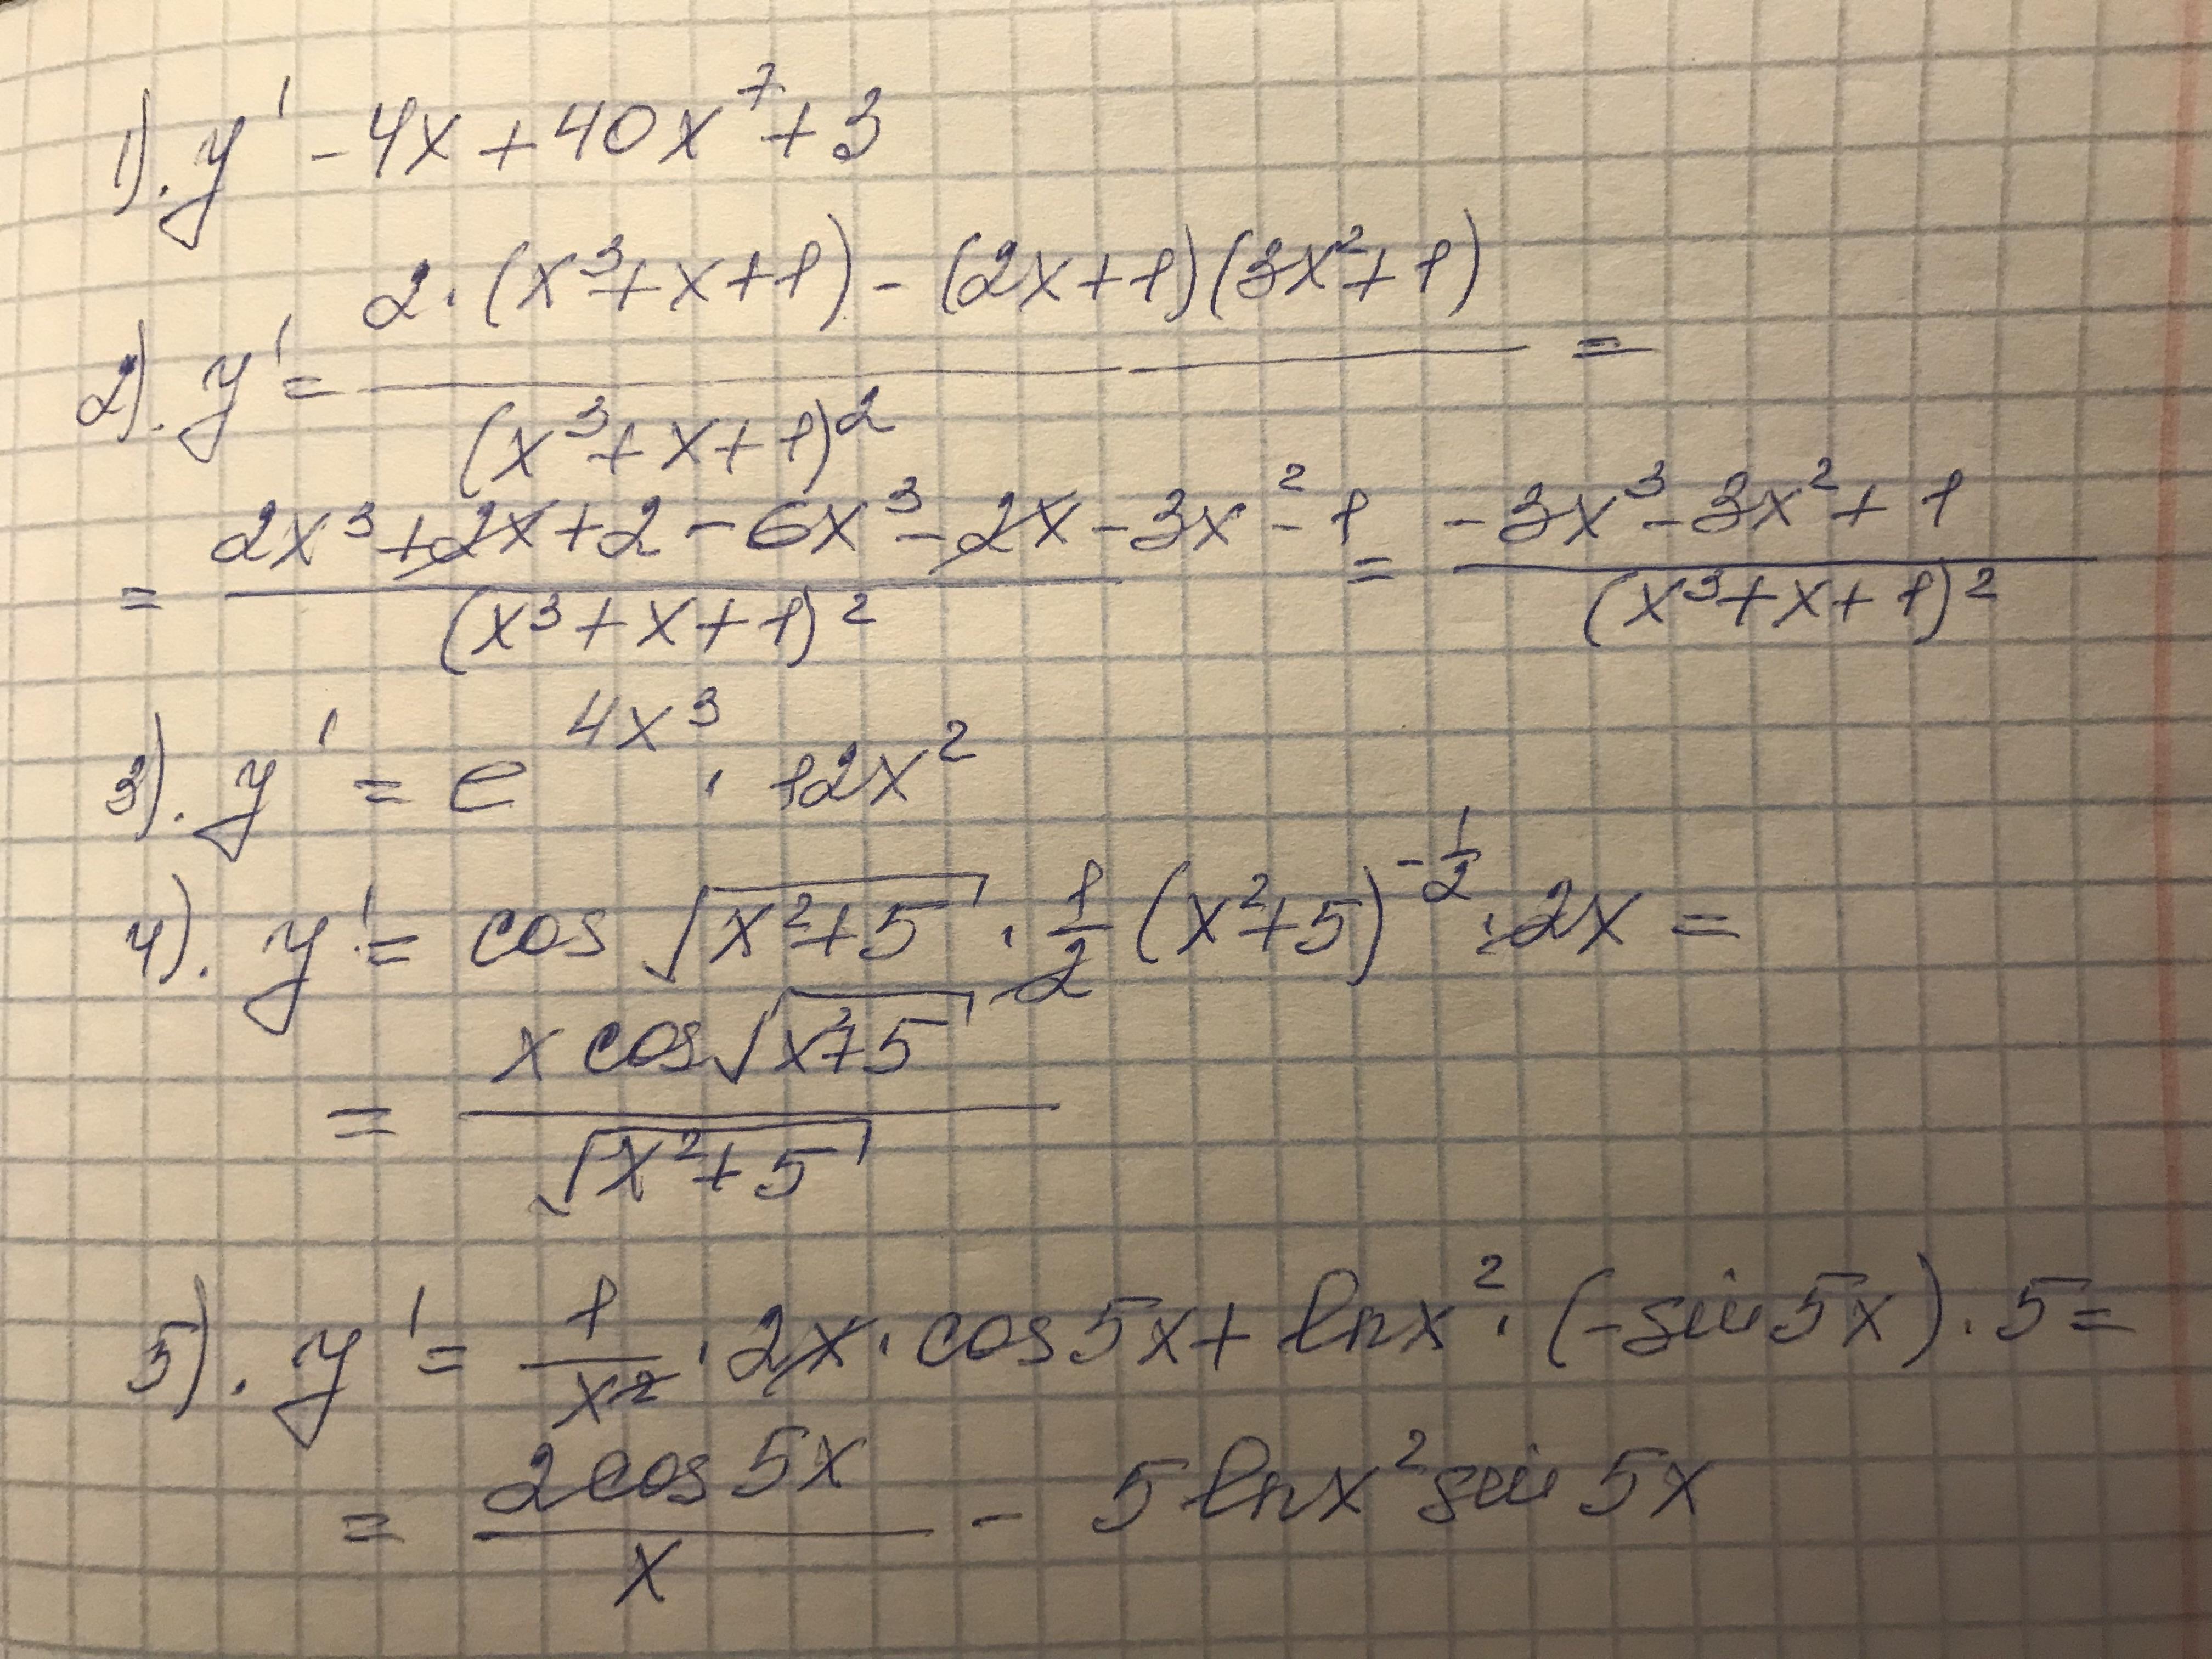 1). y' - 4x + 40x⁷ + 3
2). y' = (2·(x³+x+1) - (2x+1)(3x²+1)) / (x³+x+1)² =
= (2x³+2x+2-6x³-2x-3x²-1) / (x³+x+1)² = (-3x³-3x²+1) / (x³+x+1)²
3). y' = e^(4x³) · 12x²
4). y' = cos √(x²+5) · 1/2 (x²+5)^(-1/2) · 2x =
= (x cos √(x²+5)) / √(x²+5)
5). y' = 1/x² · 2x · cos 5x + ln x² · (-sin 5x) · 5 =
= (2 cos 5x) / x - 5 ln x² sin 5x